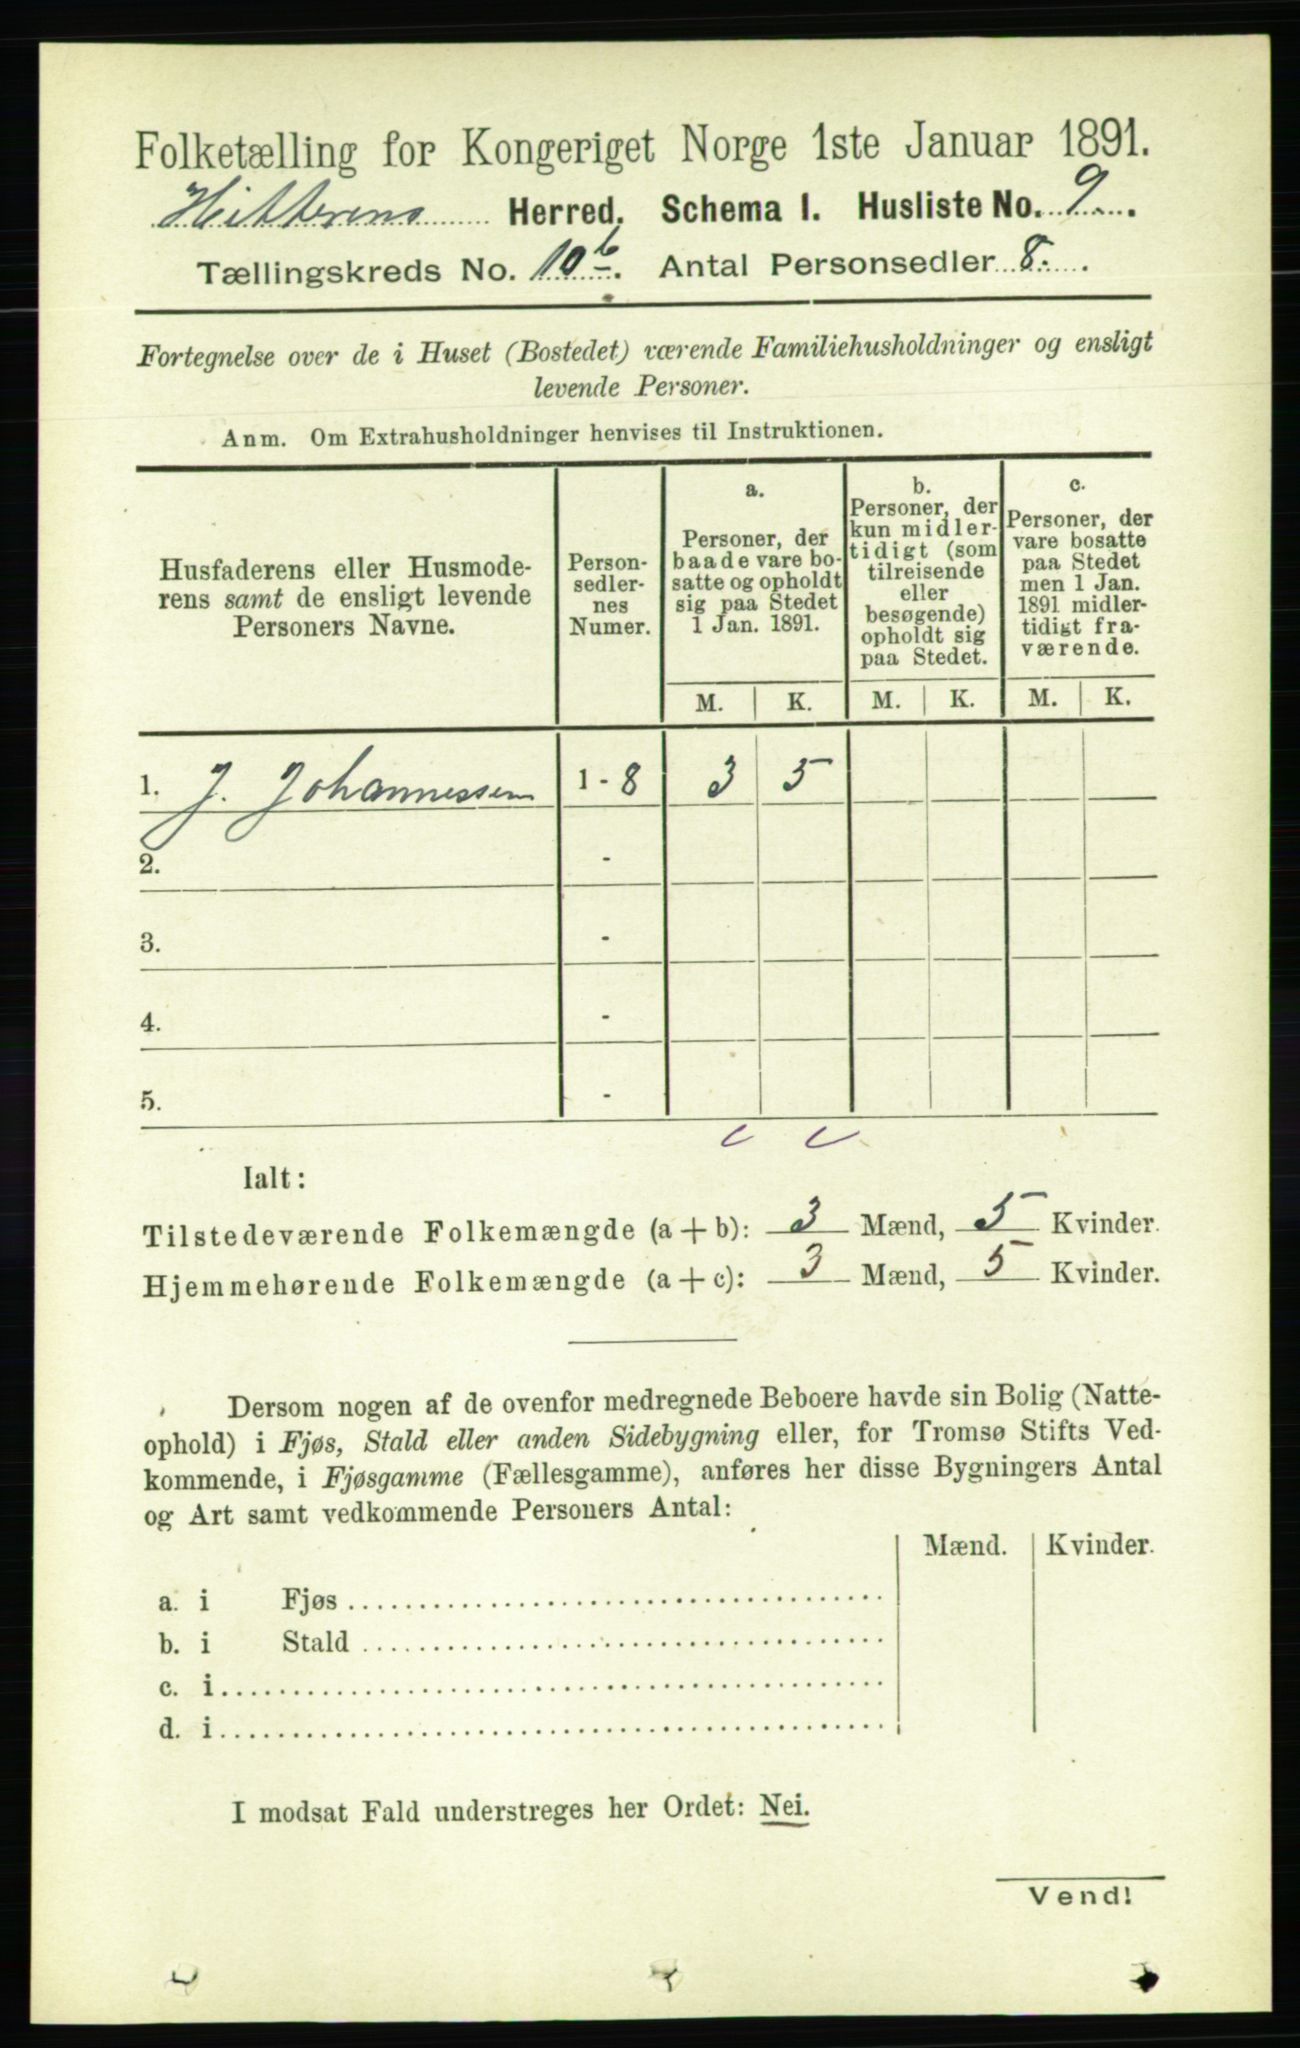 Folketælling for Kongeriget Norge 1ste Januar 1891.
Hitterens Herred. Schema I. Husliste No. 9.
Tællingskreds No. 10 b. Antal Personsedler 8.
Fortegnelse over de i Huset (Bostedet) værende Familiehusholdninger og ensligt
levende Personer.
Anm. Om Extrahusholdninger henvises til Instruktionen.
Husfaderens eller Husmode-
rens samt de ensligt levende
Personers Navne.
Person-
sedler-
nes
Numer.
a.
Personer, der
baade vare bo-
satte og opholdt
sig paa Stedet
1 Jan. 1891.
b.
Personer, der
kun midler-
tidigt (som
tilreisende
eller
besøgende)
opholdt sig
paa Stedet.
c.
Personer, der
vare bosatte
paa Stedet
men 1 Jan.
1891 midler-
tidigt fra-
værende.
M. K. M. K. M. K.
1. J. Johannessen 1 - 8 3 5
2. -
3. -
4. -
5. -
Ialt:
Tilstedeværende Folkemængde (a + b): 3 Mænd, 5 Kvinder.
Hjemmehørende Folkemængde (a + c): 3 Mænd, 5 Kvinder.
Dersom nogen af de ovenfor medregnede Beboere havde sin Bolig (Natte-
ophold) i Fjøs, Stald eller anden Sidebygning eller, for Tromsø Stifts Ved-
kommende, i Fjøsgamme (Fællesgamme), anføres her disse Bygningers Antal
og Art samt vedkommende Personers Antal:
Mænd. Kvinder.
a. i Fjøs
b. i Stald
c. i
d. i
I modsat Fald understreges her Ordet: Nei.
Vend!